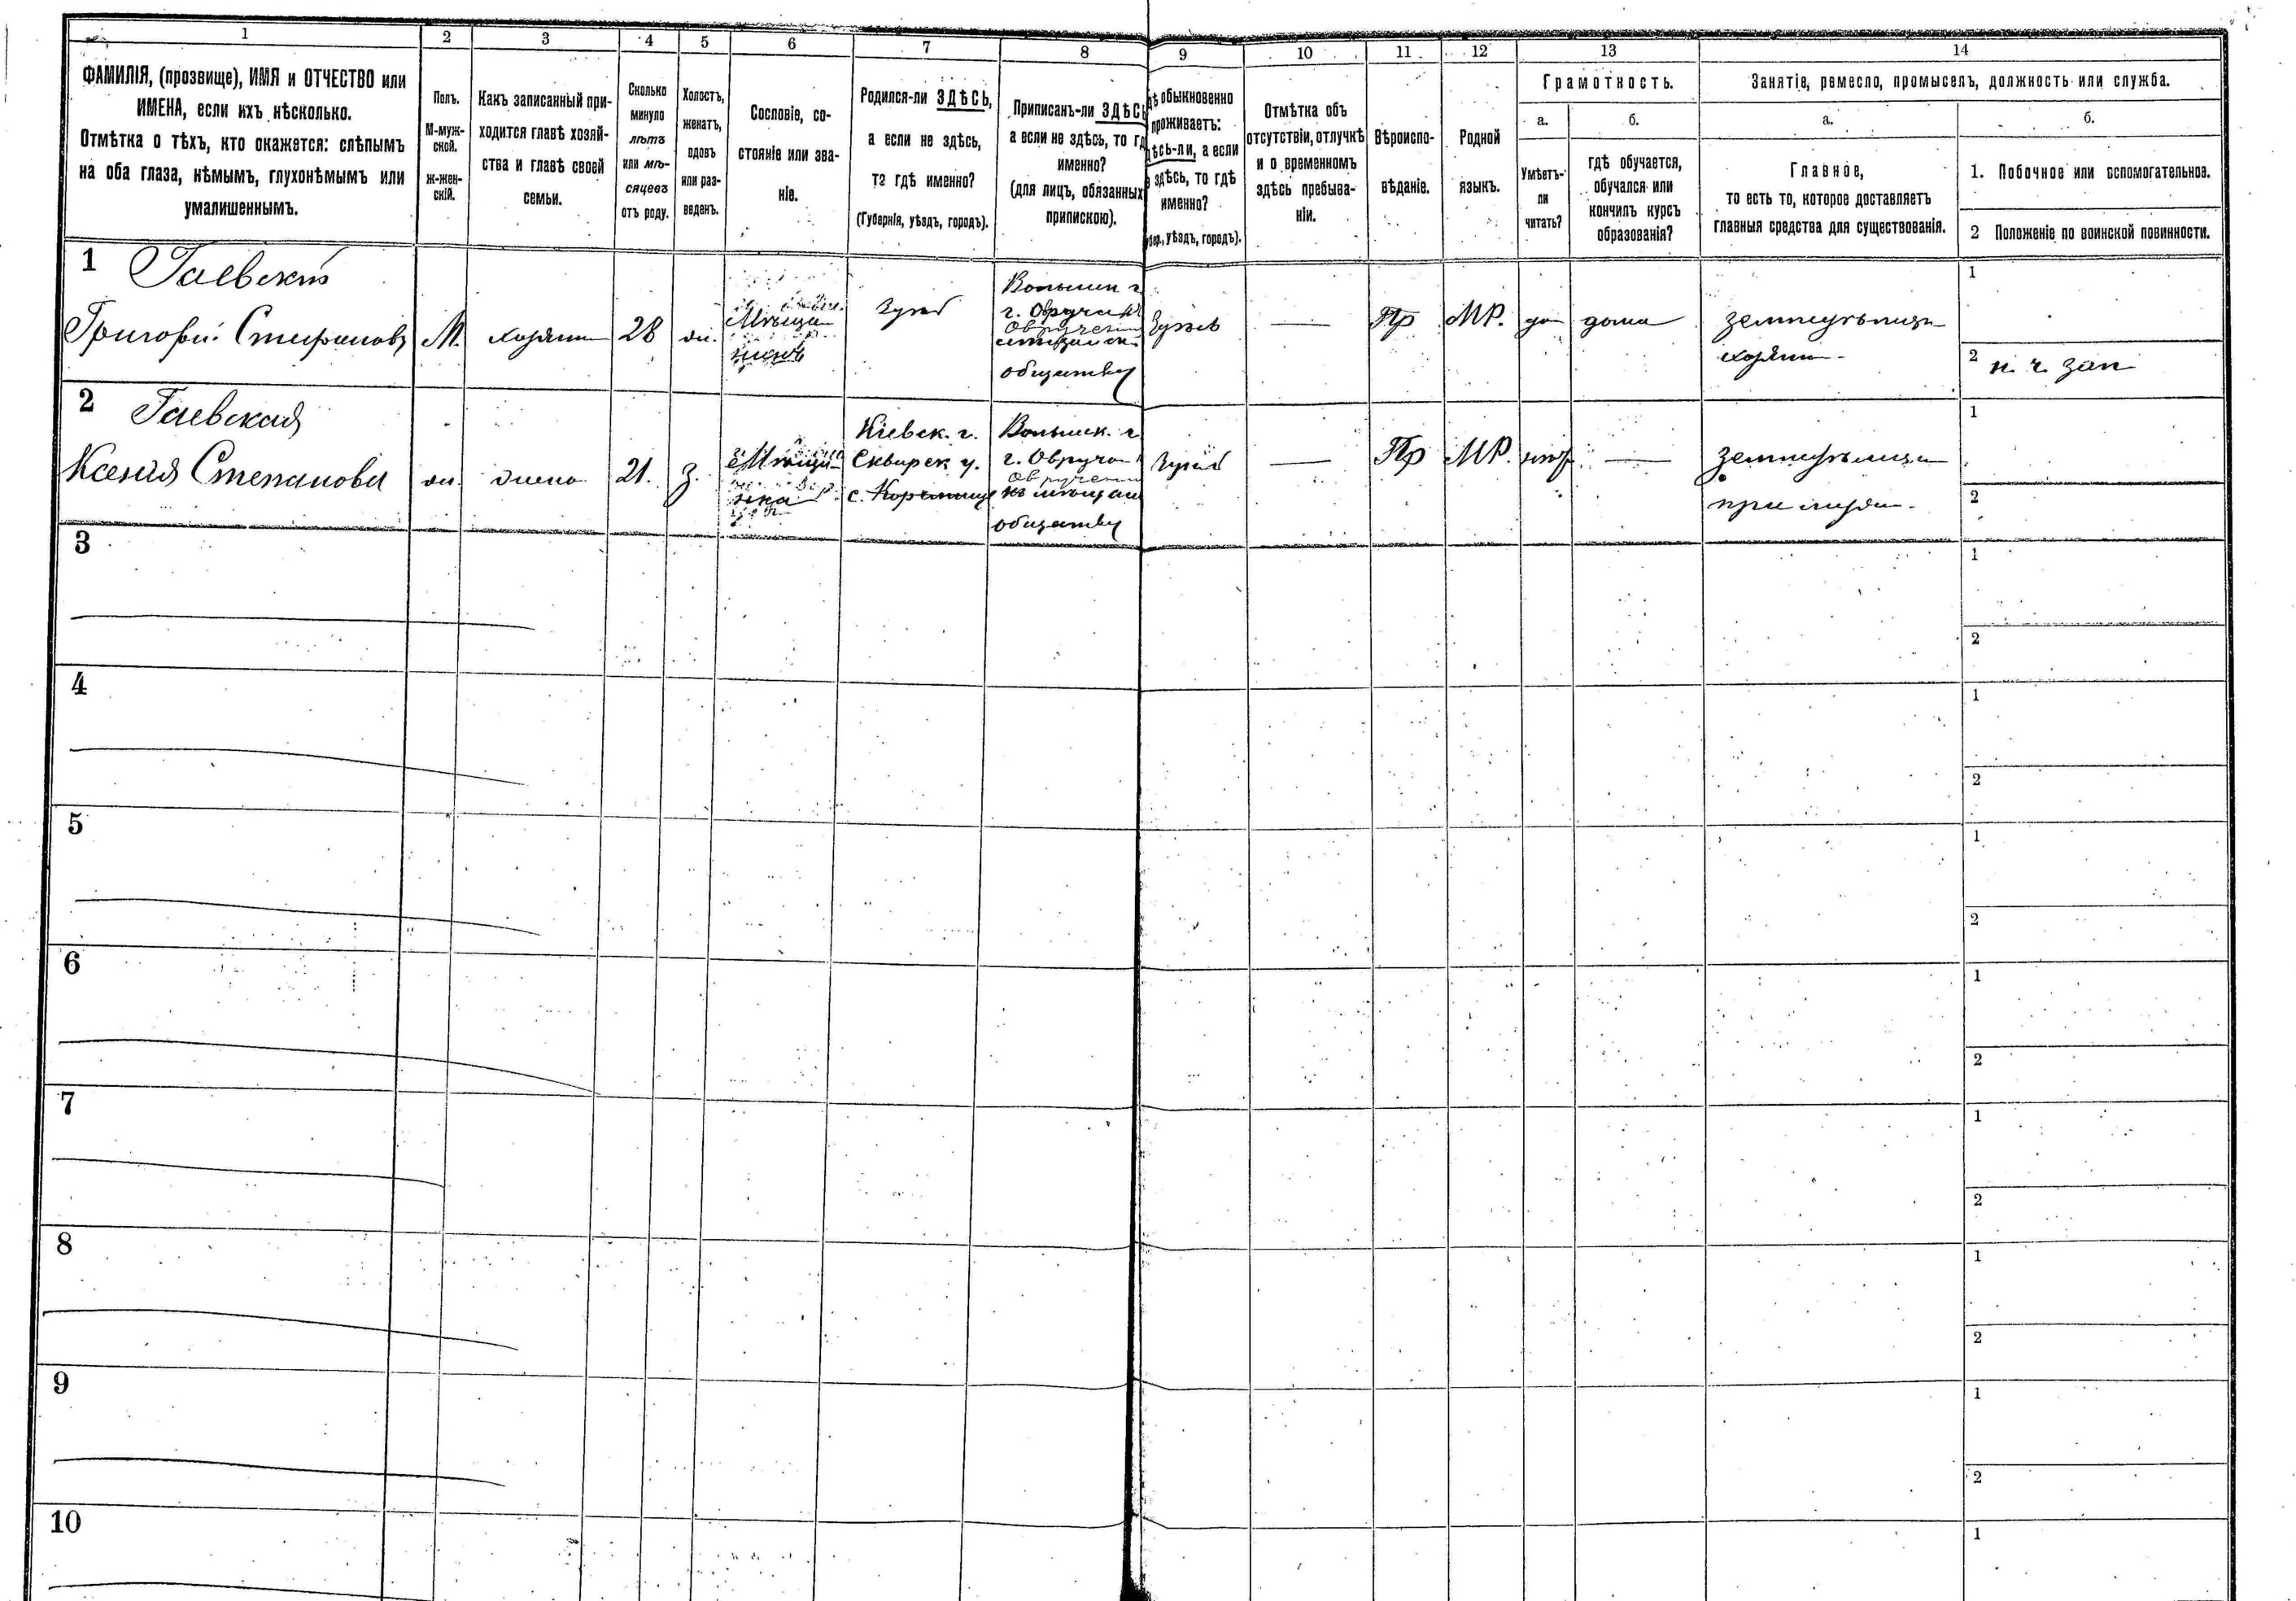 1
2
3
4
5
6
7
8
9
10
11
12
13
14
ФАМИЛІЯ, (прозвище), ИМЯ и ОТЧЕСТВО или
ИМЕНА, если ихъ нѣсколько.
Отмѣтка о тѣхъ, кто окажется: слѣпымъ
на оба глаза, нѣмымъ, глухонѣмымъ или
умалишеннымъ.
Полъ.
М-муж-
ской.
Ж-жен-
скій.
Какъ записанный при-
ходится главѣ хозяй-
ства и главѣ своей
семьи.
Сколько
минуло
лѣтъ
или мѣ-
сяцевъ
отъ роду.
Холостъ,
женатъ,
вдовъ
или раз-
веденъ.
Сословіе, со-
стояніе или зва-
ніе.
Родился-ли ЗДѢСЬ,
а если не здѣсь,
то гдѣ именно?
(Губернія, уѣздъ, городъ).
Приписанъ-ли ЗДѢСЬ
а если не здѣсь, то гд
именно?
(для лицъ, обязанныхъ
припискою).
дѣ обыкновенно
проживаетъ:
дѣсь-ли, а если
е здѣсь, то гдѣ
именно?
убер., уѣздъ, городъ).
Отмѣтка объ
отсутствіи, отлучкѣ
и о временномъ
здѣсь пребыва-
ніи.
Вѣроиспо-
вѣданіе.
Родной
языкъ.
Грамотность.
а.
Умѣетъ-
ли
читать?
б.
гдѣ обучается,
обучался или
кончилъ курсъ
образованія?
Занятіе, ремесло, промыселъ, должность или служба.
а.
Главное,
то есть то, которое доставляетъ
главныя средства для существованія.
б.
1. Побочное или вспомогательное.
2 Положеніе по воинской повинности.
1
Гаевскій
Григорій Стефановъ
М.
хозяинъ
28
ж.
Мѣща-
нинъ
Здѣсь
Волынск г.
г. Овручъ
обществу
Здѣсь
—
Пр
МР.
да
дома
земледѣлецъ
хозяинъ
1
2 н. ч. зап
2
Гаевская
Ксенія Степанова
ж.
жена
21.
з.
Мѣщан
нка
Кіевск. г.
Сквирск у.
Волынск. г
г. Овруч
къ мѣщан
обществу
Здѣсь
—
Пр
МР.
нѣт
—
земледѣлица
при мужѣ
1
2
3
1
2
4
1
2
5
1
2
6
1
2
7
1
2
8
1
2
9
1
2
10
1